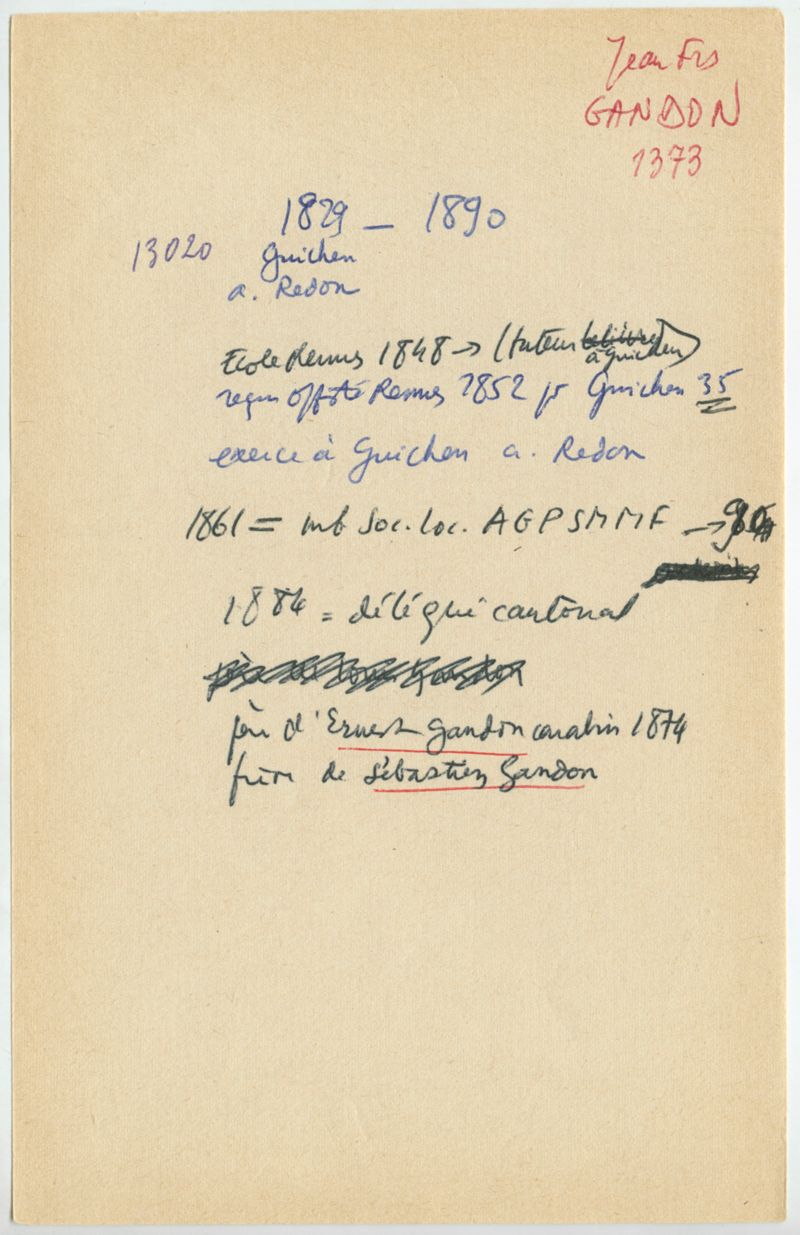 Jean Frs
GANDON
1373
1829 – 1890
13020 Guichen
a. Redon
Ecole Rennes 1848 → (tuteur
à Guichen)
reçu off Sté Rennes 1852 pr Guichen 35
exerce à Guichen a. Redon
1861 = mb Soc. loc. AGPSMMF → 90
1884 = délégué cantonal
père d'Ernest Gandon carabin 1874
frère de Sébastien Gandon